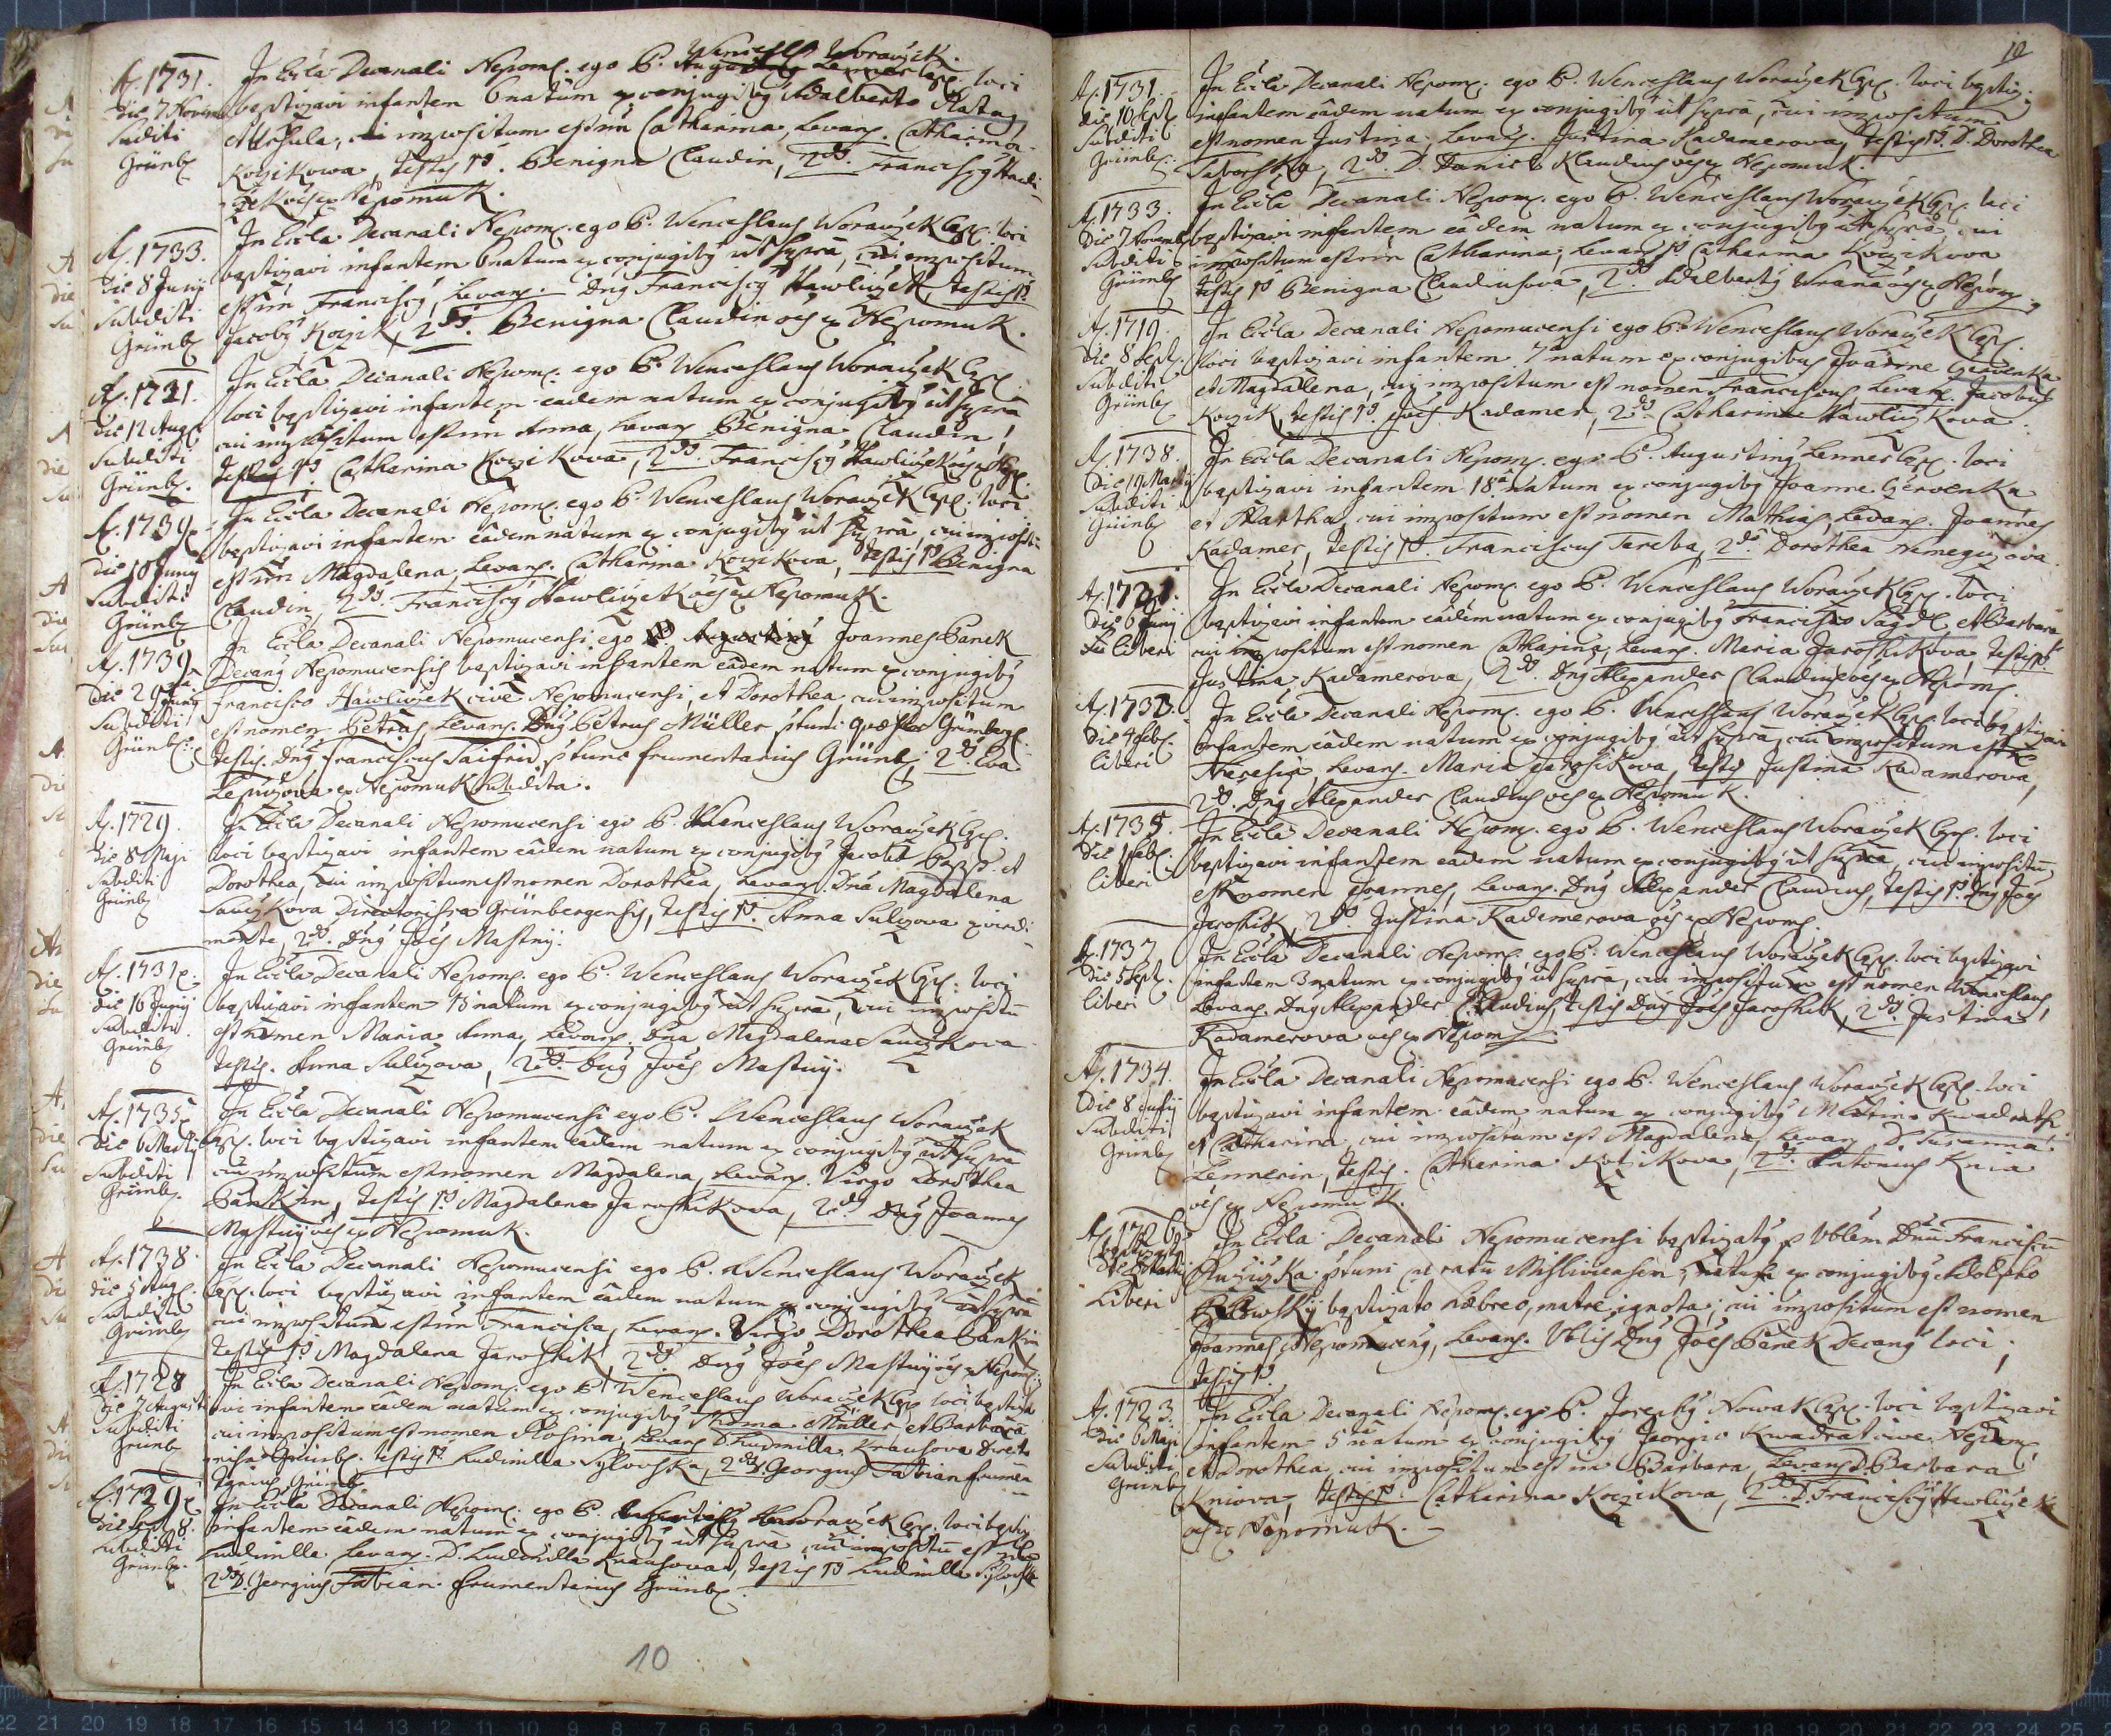 A. 1731.
Die 7 Novem
Subditi
Grünb.
In Eccla Decanali Nepom. ego P. Wenceslaus Woraczek Cap. loci
baptizavi infantem 6 natum ex conjugibus Adalberto
et Ursula, cui impositum est nn Catharina, Levans. Catharina
Koczikowa, testis 1º. Benigna Claudin, 2dº. Franciscus Hawli
czek ex Nepomuk.
A. 1733.
Die 8 Junij
Subditi
Grünb
In Eccla Decanali Nepom. ego P. Wenceslaus Woraczek Cap. loci
baptizavi infantem 6 natum ex conjugibus ut supra, cui impositum
est nn Franciscus, Levans. Dnus Franciscus Hawliczek, testis 1º
Jacobus Koczik, 2dº. Benigna Claudin oes ex Nepomuk.
A. 1731.
Die 12 Aug
Subditi
Grünb.
In Eccla Decanali Nepom. ego P. Wenceslaus Woraczek Cap
loci baptizavi infantem eadem natum ex conjugibus ut supra
cui impositum est nn Anna, Levans Benigna Claudin,
testis 1º. Catharina Koczikova, 2dº. Franciscus Hawliczek oes ex Nep.
A. 1739.
Die 18 Junij
Subditi
Grünb
In Eccla Decanali Nepom. ego P. Wenceslaus Woraczek Cap. loci
baptizavi infantem eadem natum ex conjugibus ut supra, cui impositu
est nn Magdalena, Levans. Catharina Koczikova, testis 1º Benigna
Claudin, 2dº. Franciscus Hawliczek oes ex Nepomuk.
A. 1739
Die 29 Junij
Subditi
Grünb.
In Eccla Decanali Nepomucensi ego Joannes Panek
Decanus Nepomucensis baptizavi infantem eadem natum ex conjugibus
Francisco Hawliczek cive Nepomucensi, et Dorothea, cui impositum
est nomen Petrus, Levans. Dnus Petrus Müller Grünberg.
testis. Dnus Franciscus p tunc frumentarius Grünb, 2dº. Eva
ex Nepomuk subdita.
A. 1729.
Die 8 Maji
Subditi
Grünb
In Eccla Decanali Nepomucensi ego P. Wenceslaus Woraczek Cap.
loci baptizavi infantem eadem natum ex conjugibus Jacobo et
Dorothea, cui impositum est nomen Dorothea, Levans. Dna Magdalena
Sauczkova Grünbergensis, testis 1º. Anna Sulczova ex viridi
monte, 2dº. Dnus Joes Mastny.
A. 1731.
Die 16 Junij
Subditi
Grünb
In Eccla Decanali Nepom. ego P. Wenceslaus Woraczek Cap. loci
baptizavi infantem 15 natum ex conjugibus ut supra, cui impositu
est nomen Maria Anna, Levans. Dna Magdalena Sauczkova
testis. Anna Sulczova, 2dº. Dnus Joes Mastny.
A. 1735
Die 6 Martij
Subditi
Grünb.
In Eccla Decanali Nepomucensi ego P. Wenceslaus Woraczek
Cap. loci baptizavi infantem eadem natum ex conjugibus ut supra
cui impositum est nomen Magdalena, Levans. Virgo Dorothea
Pankin, testis 1º. Magdalena Jaroschikova, 2dº. Dnus Joannes
Mastny oes ex Nepomuk.
A. 1738.
Die 5 Aug.
Subditi
Grünb
In Eccla Decanali Nepomucensi ego P. Wenceslaus Woraczek
Cap. loci baptizavi infantem eadem natum ex conjugibus ut supra
cui impositum est nn Francisca, Levans. Virgo Dorothea Pankin
testis 1º Magdalena Jaroschik, 2dº. Dnus Joes Mastny oes ex Nepom.
A. 1727
Die 7 Augusti
Subditi
Grünb
In Eccla Decanali Nepom. ego P. Wenceslaus Woraczek Cap. loci baptiza
vi infantem eadem natum ex conjugibus Thoma Müller et Barbara
cui impositum est nomen Rosina, Levans D. Ludmilla Krausova
Grünb. testis 1º Ludimilla Sylovska, 2dº. Georgius Fabian frumen
tarius Grünb
A. 1729
Subditi
Grünb.
In Eccla Decanali Nepom. ego P. Woraczek Cap. loci baptiz
infantem eadem natum ex conjugibus ut supra cui impositu est
Ludmilla. Levans. D. Ludmilla Krausova, testis 1º Ludmilla
2dº D. Georgius Fabian frumentarius Grünb.
10
12
A. 1731.
Die 10 Sept.
Subditi
Grünb.
In Eccla Decanali Nepom. ego P. Wenceslaus Woraczek Cap. loci baptiz.
infantem eadem natum ex conjugibus ut supra, cui impositum
est nomen Justina, Levans. Justina Kadamerova, testis 1º. D. Dorothea
Taborska, 2dº. D. Daniel Klaudius oes ex Nepomuk.
A. 1733.
Die 7 Novemb
Subditi
Grünb
In Eccla Decanali Nepom. ego P. Wenceslaus Woraczek Cap. loci
baptizavi infantem eadem natum ex conjugibus ut supra cui
impositum est nn Catharina, Levans Catharina Koczikova
testis 1º Benigna Claudiusova, 2dº. Adalbertus Wrana oes ex Nepom.
A. 1719.
Die 8 Sept.
Subditi
Grünb
In Eccla Decanali Nepomucensi ego P. Wenceslaus Woraczek Cap.
loci baptizavi infantem 7 natum ex conjugibus Joanne Czervenka
et Magdalena, cui impositum est nomen Franciscus, Levans. Jacobus
Koczik, testis 1º. Joes Kadamer, 2dº Catharina Hawliczkova.
A. 1738.
Die 19 Martij
Subditi
Grünb
In Eccla Decanali Nepom. ego P. Augustinus Lenner Cap. loci
baptizavi infantem 18 natum ex conjugibus Joanne Czervenka
et Martha, cui impositum est nomen Mathias, Levans. Joannes
Kadamer, testis 1º. Franciscus Tereba, 2dº Dorothea
A. 1731.
Die 6 Junij
Liberi
In Eccla Decanali Nepom. ego P. Wenceslaus Woraczek Cap. loci
baptizavi infantem eadem natum ex conjugibus Francisco et Barbara
cui impositum est nomen Catharina, Levans. Maria Jaroschikova, testis 1º
Justina Kadamerova, 2dº. Dnus Alexander Claudius oes ex Nepom.
A. 1733.
Die 4 Feb.
Liberi
In Eccla Decanali Nepom. ego P. Wenceslaus Woraczek Cap. loci baptizavi
infantem eadem natum ex conjugibus ut supra, cui impositum est
Theresia, Levans. Maria Jaroschikova, testis Justina Kadamerova,
2dº. Dnus Alexander Claudius oes ex Nepomuk.
A. 1735.
Die 1 Feb.
Liberi
In Eccla Decanali Nepom. ego P. Wenceslaus Woraczek Cap. loci
baptizavi infantem eadem natum ex conjugibus ut supra, cui impositu
est nomen Joannes, Levans. Dnus Alexander Claudius, testis 1º. Dnus Joes
Jaroschik, 2dº. Justina Kadamerova oes ex Nepom.
A. 1737
Die 5 Sept.
Liberi
In Eccla Decanali Nepom. ego P. Wenceslaus Woraczek Cap. loci baptizavi
infantem 3 natum ex conjugibus ut supra, cui impositum est nomen Wenceslaus,
Levans. Dnus Alexander Claudius, testis Dnus Joes Jaroschik, 2dº. Justina
Kadamerova oes ex Nepom
A. 1734.
Die 8 Julij
Subditi
Grünb
In Eccla Decanali Nepomucensi ego P. Wenceslaus Woraczek Cap. loci
baptizavi infantem eadem natum ex conjugibus Martino Kwadrath
et Catharina, cui impositum est Magdalena, Levans D. Susanna
Lennerin, testis. Catharina Kotzikova, 2dº. Antonius Knia
oes ex Nepomuk.
A. 1726
Liberi
In Eccla Decanali Nepomucensi baptizatus p Vblem Dnu Franciscu
Ruziczka p tunc curatu natus ex conjugibus Adolpho
baptizato Hebreo, matre ignota, cui impositum est nomen
Joannes Nepomucenus, Levans. Vblis Dnus Joes Panek Decanus loci,
testis 1º.
A. 1723.
Die 6 Maji
Subditi
Grünb
In Eccla Decanali Nepom. ego P. Josephus Nowak Cap. loci baptizavi
infantem 5 natum ex conjugibus Georgio Kwadrat cive Nepom
et Dorothea, cui impositum est nn Barbara, Levans D. Barbara
Kniova, testis 1º. Catharina Koczikova, 2dº. D. Franciscus Hawliczek
oes ex Nepomuk.